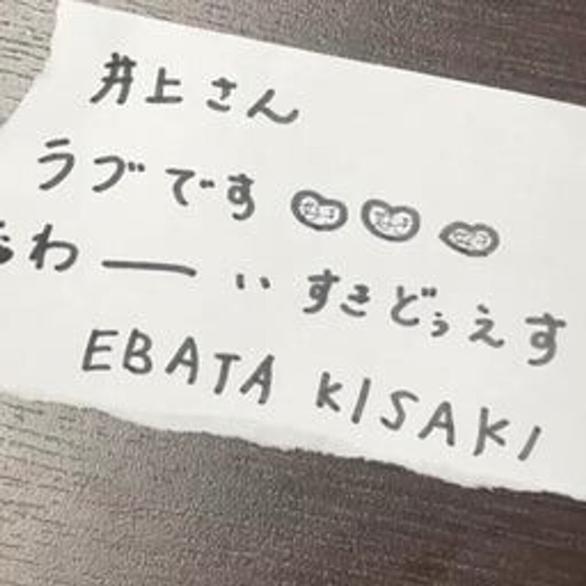 井上さん
ラブです
わーいすきどぅえす
EBATA KISAKI